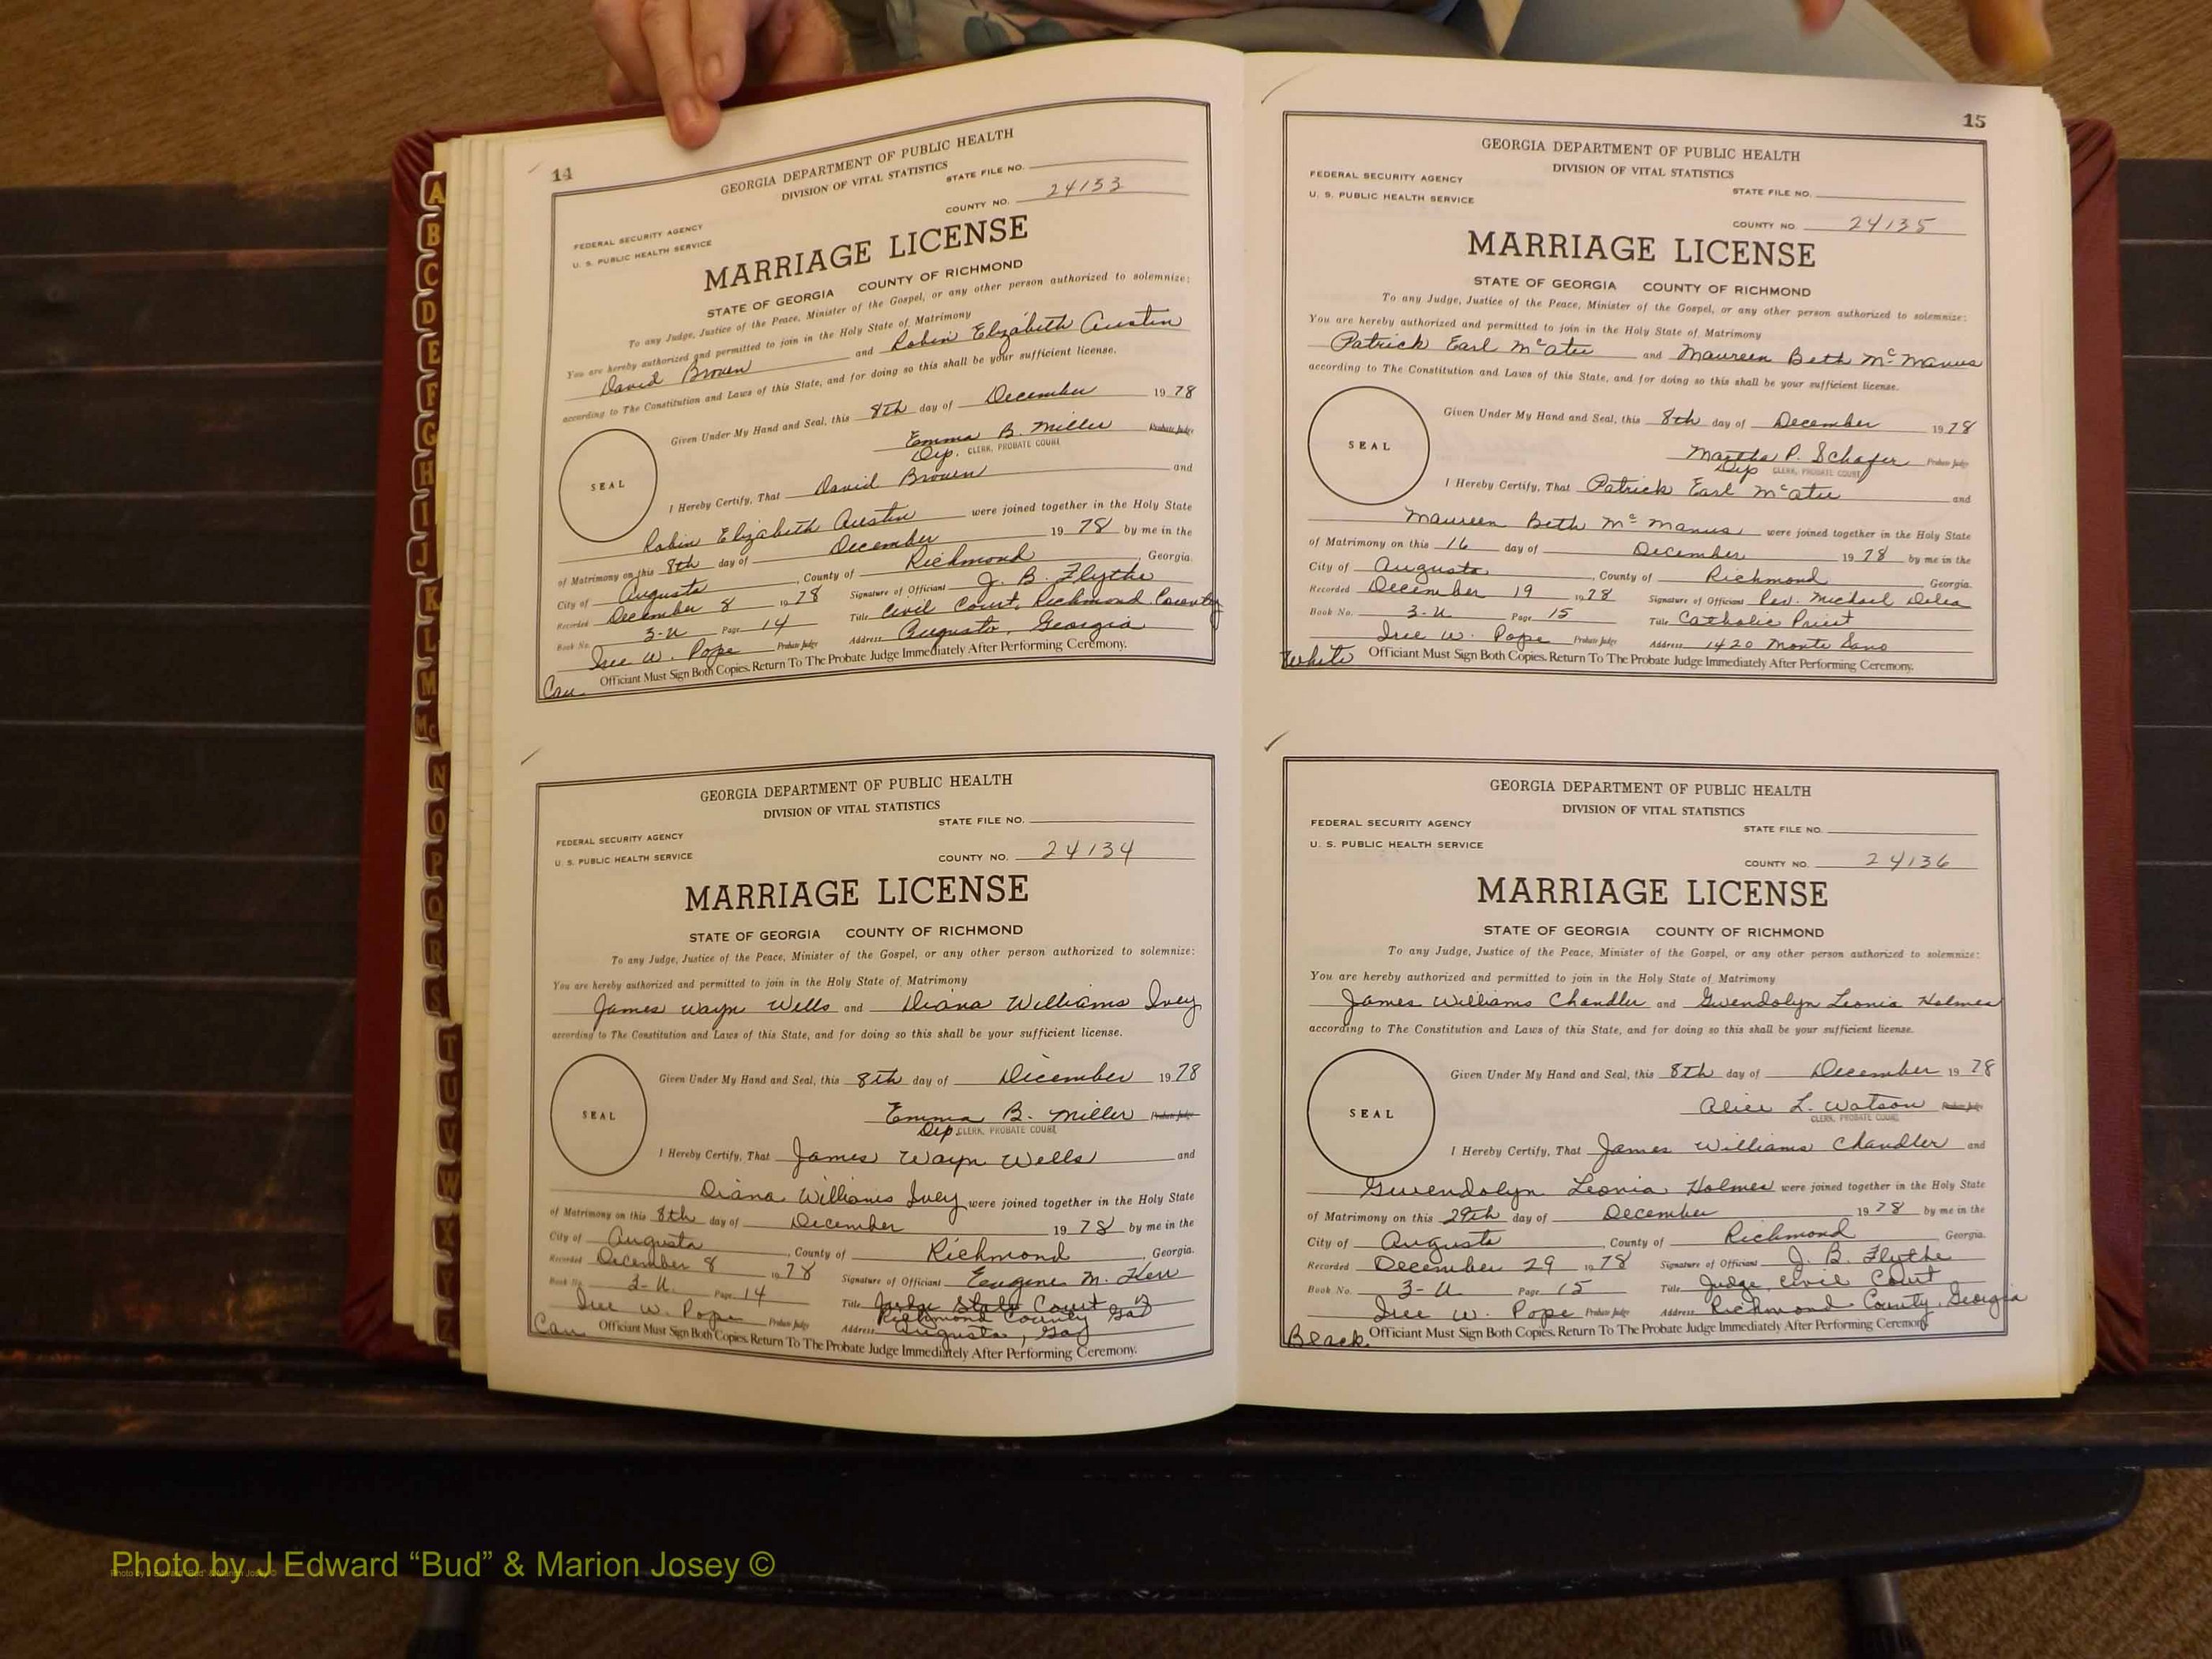 A
B
C
D
E
F
G
H
I
J
K
L
M
Mc
N
O
P
Q
R
S
T
U
V
W
X
Y
Z
14
GEORGIA DEPARTMENT OF PUBLIC HEALTH
DIVISION OF VITAL STATISTICS
STATE FILE NO.
COUNTY NO. 24133
FEDERAL SECURITY AGENCY
U. S. PUBLIC HEALTH SERVICE
MARRIAGE LICENSE
STATE OF GEORGIA COUNTY OF RICHMOND
To any Judge, Justice of the Peace, Minister of the Gospel, or any other person authorized to solemnize:
You are hereby authorized and permitted to join in the Holy State of Matrimony
David Brown and Robin Elizabeth Austin
according to The Constitution and Laws of this State, and for doing so this shall be your sufficient license.
Given Under My Hand and Seal, this 8th day of December 1978
Emma B. Miller Probate Judge
Dep. CLERK, PROBATE COURT
SEAL
I Hereby Certify, That David Brown and
Robin Elizabeth Austin were joined together in the Holy State
of Matrimony on this 8th day of December 1978 by me in the
City of Augusta, County of Richmond, Georgia.
Recorded December 8 1978 Signature of Officiant J. B. Flythe
Book No. 3-U Page 14 Title Civil Court, Richmond County
Iree W. Pope Probate Judge Address Augusta, Georgia
Cau. Officiant Must Sign Both Copies. Return To The Probate Judge Immediately After Performing Ceremony.
GEORGIA DEPARTMENT OF PUBLIC HEALTH
DIVISION OF VITAL STATISTICS
STATE FILE NO.
FEDERAL SECURITY AGENCY
U. S. PUBLIC HEALTH SERVICE
COUNTY NO. 24134
MARRIAGE LICENSE
STATE OF GEORGIA COUNTY OF RICHMOND
To any Judge, Justice of the Peace, Minister of the Gospel, or any other person authorized to solemnize:
You are hereby authorized and permitted to join in the Holy State of Matrimony
James Wayn Wells and Diana Williams Ivey
according to The Constitution and Laws of this State, and for doing so this shall be your sufficient license.
Given Under My Hand and Seal, this 8th day of December 1978
Emma B. Miller Probate Judge
Dep CLERK, PROBATE COURT
SEAL
I Hereby Certify, That James Wayn Wells and
Diana Williams Ivey were joined together in the Holy State
of Matrimony on this 8th day of December 1978 by me in the
City of Augusta, County of Richmond, Georgia.
Recorded December 8 1978 Signature of Officiant Eeugene M. Kerr
Book No. 3-U. Page 14 Title Judge State Court of
Richmond County Ga
Iree W. Pope Probate Judge Address Augusta, Ga
Cau Officiant Must Sign Both Copies. Return To The Probate Judge Immediately After Performing Ceremony.
15
GEORGIA DEPARTMENT OF PUBLIC HEALTH
DIVISION OF VITAL STATISTICS
FEDERAL SECURITY AGENCY
STATE FILE NO.
U. S. PUBLIC HEALTH SERVICE
COUNTY NO. 24135
MARRIAGE LICENSE
STATE OF GEORGIA COUNTY OF RICHMOND
To any Judge, Justice of the Peace, Minister of the Gospel, or any other person authorized to solemnize:
You are hereby authorized and permitted to join in the Holy State of Matrimony
Patrick Earl McAtee and Maureen Beth McManus
according to The Constitution and Laws of this State, and for doing so this shall be your sufficient license.
Given Under My Hand and Seal, this 8th day of December 1978
Martha P. Schafer Probate Judge
Dep CLERK, PROBATE COURT
SEAL
I Hereby Certify, That Patrick Earl McAtee and
Maureen Beth McManus were joined together in the Holy State
of Matrimony on this 16 day of December 1978 by me in the
City of Augusta, County of Richmond, Georgia.
Recorded December 19 1978 Signature of Officiant Rev. Michael
Book No. 3-U Page 15 Title Catholic Priest
Iree W. Pope Probate Judge Address 1420 Monte Sano
White Officiant Must Sign Both Copies. Return To The Probate Judge Immediately After Performing Ceremony.
GEORGIA DEPARTMENT OF PUBLIC HEALTH
DIVISION OF VITAL STATISTICS
FEDERAL SECURITY AGENCY
STATE FILE NO.
U. S. PUBLIC HEALTH SERVICE
COUNTY NO. 24136
MARRIAGE LICENSE
STATE OF GEORGIA COUNTY OF RICHMOND
To any Judge, Justice of the Peace, Minister of the Gospel, or any other person authorized to solemnize:
You are hereby authorized and permitted to join in the Holy State of Matrimony
James Williams Chandler and Gwendolyn Leonia Holmes
according to The Constitution and Laws of this State, and for doing so this shall be your sufficient license.
Given Under My Hand and Seal, this 8th day of December 1978
Alice L. Watson Probate Judge
CLERK, PROBATE COURT
SEAL
I Hereby Certify, That James Williams Chandler and
Gwendolyn Leonia Holmes were joined together in the Holy State
of Matrimony on this 29th day of December 1978 by me in the
City of Augusta, County of Richmond Georgia.
Recorded December 29 1978 Signature of Officiant J. B. Flythe
Book No. 3-U Page 15 Title Judge, Civil Court
Iree W. Pope Probate Judge Address Richmond County, Georgia
Black. Officiant Must Sign Both Copies. Return To The Probate Judge Immediately After Performing Ceremony.
Photo by J Edward “Bud” & Marion Josey ©
Photo by J Edward "Bud" & Marion Josey ©